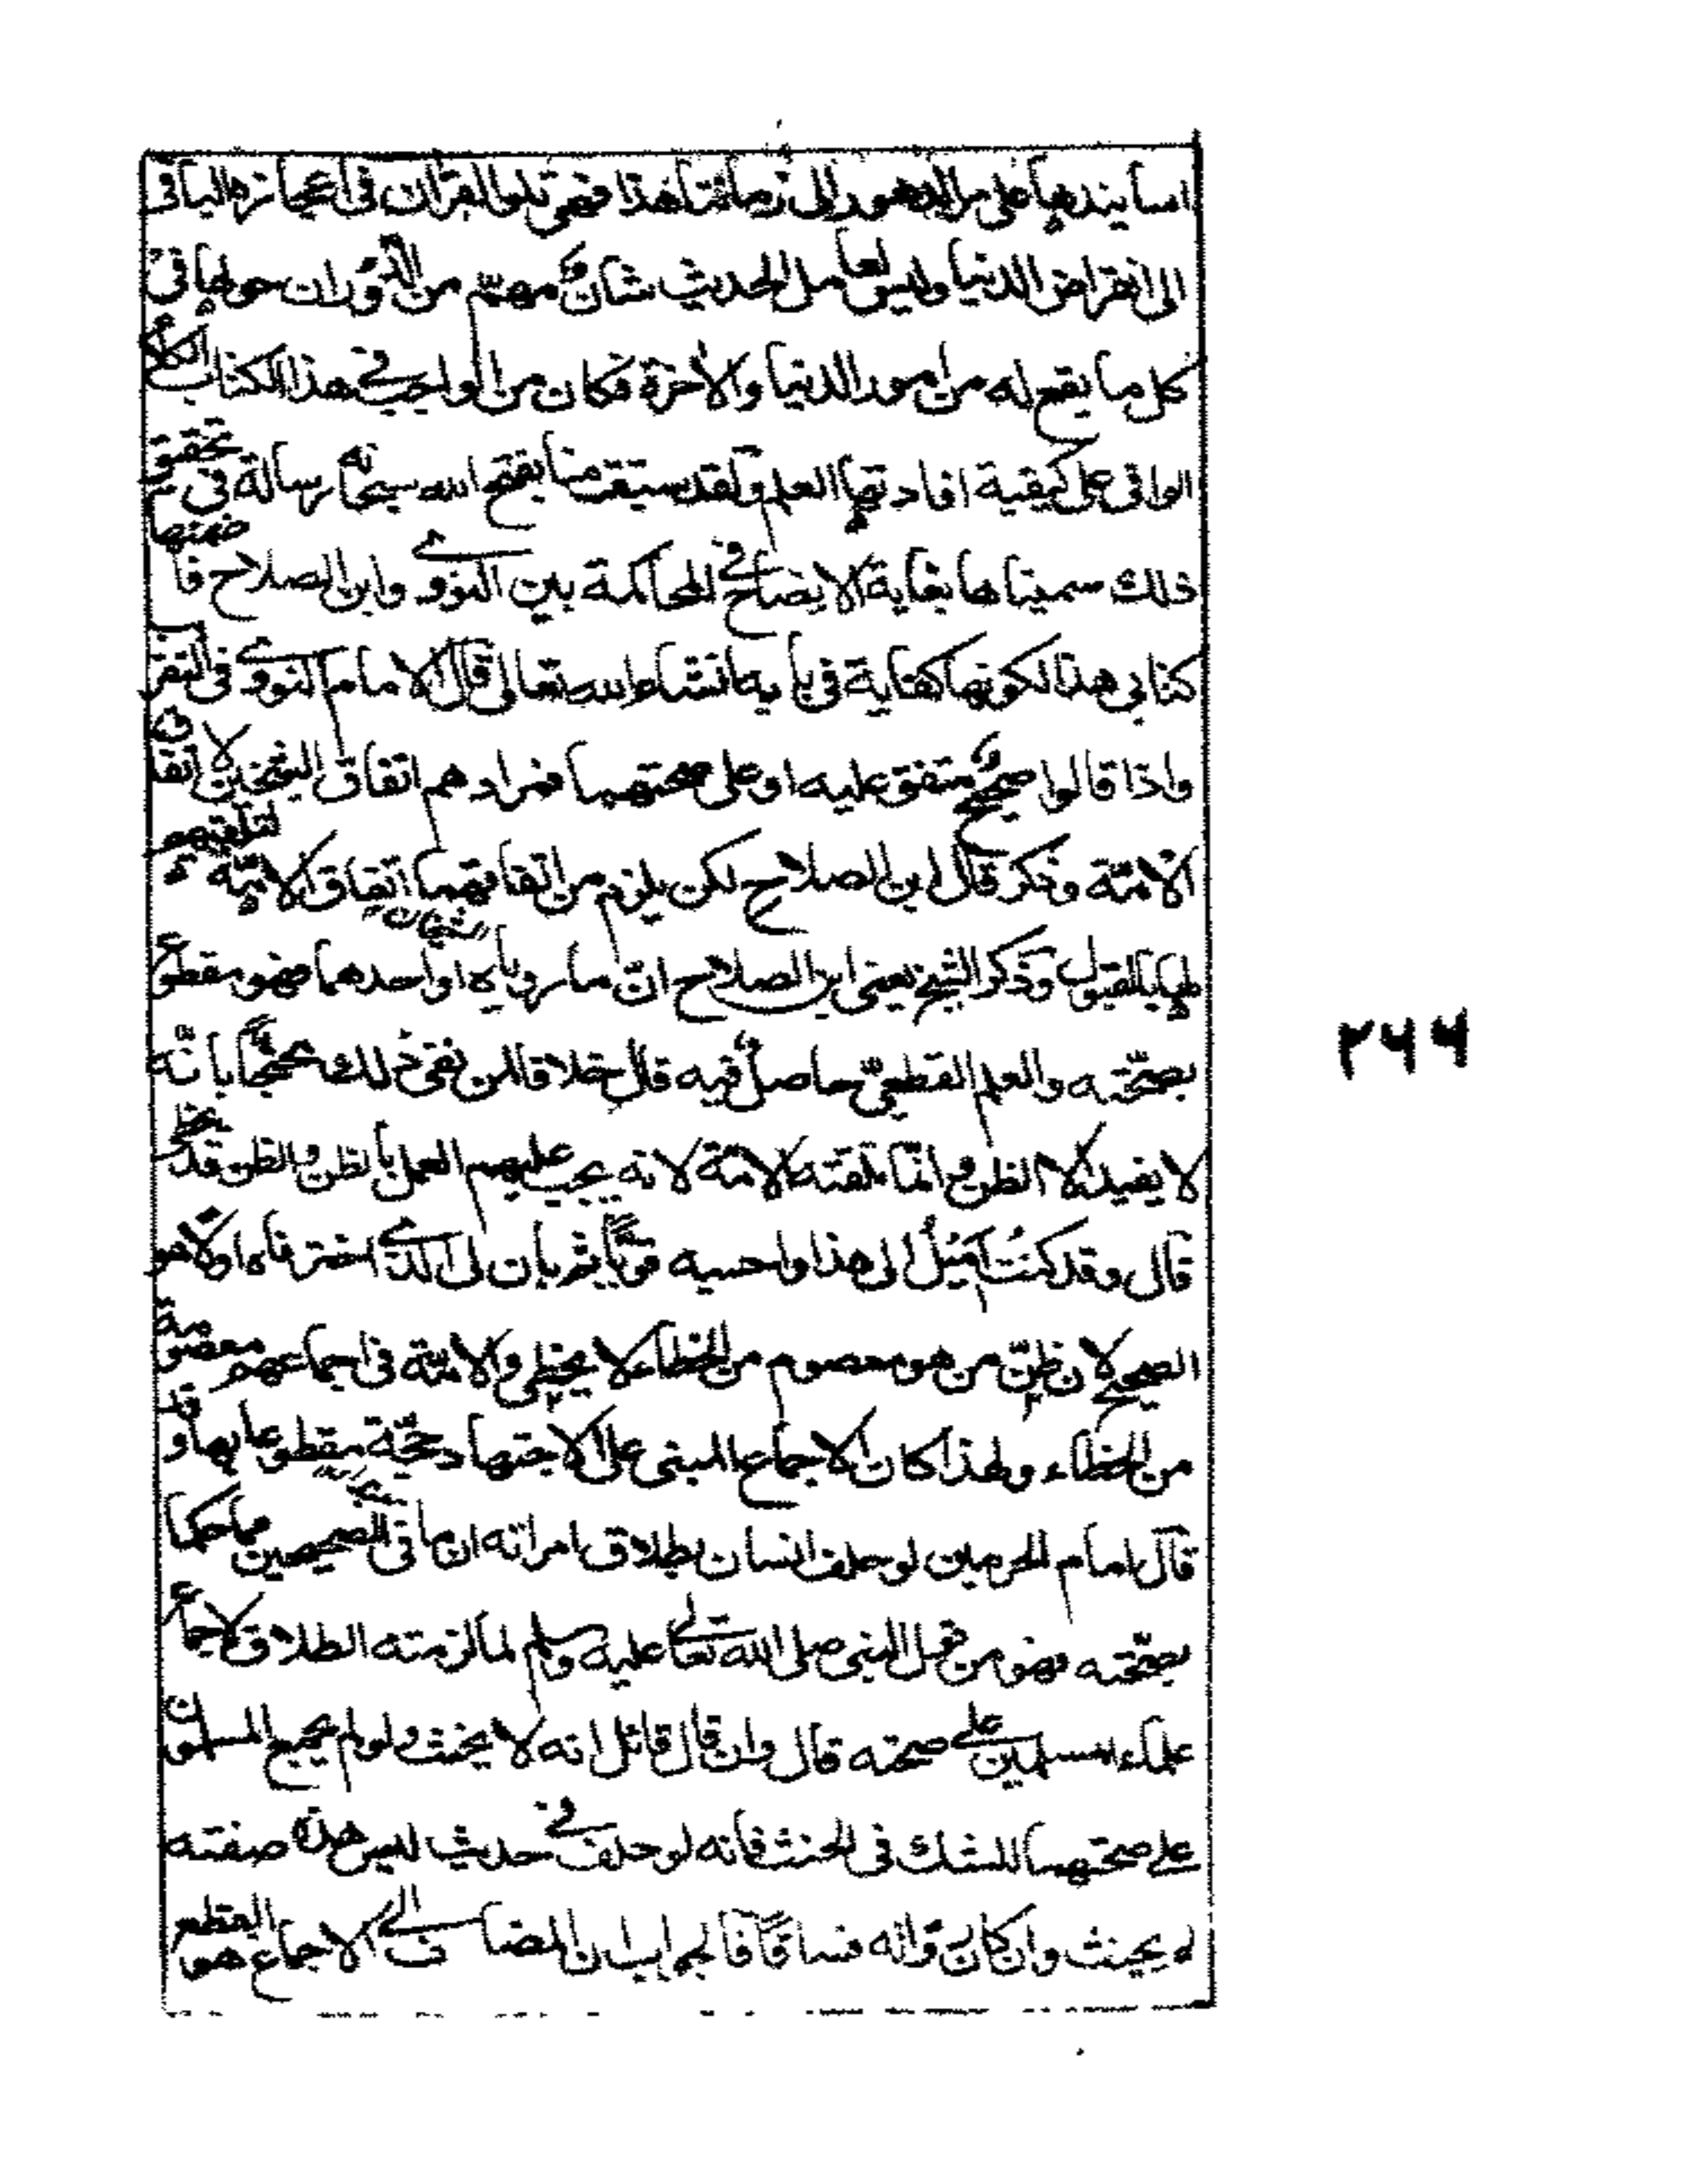 اسانيدها على مر الدهور الى زماننا هذا فهى تلو القرآن فى اعجازها الباقى
الى انقراض الدنيا وليس لعامل الحديث شان مهم من الدوران حولها فى
كل ما يقع له من امور الدنيا والآخرة فكان من الواجب فى هذا الكتاب الكلام
الوافى على كيفية افادتها العلم ولقد سبقت منا بفتح الله سبحانه رسالة فى تحقيق
ذلك سميناها بغاية الايضاح فى المحاكمة بين النووى وابن الصلاح فاضمنها
كتابى هذا لكونها كفاية فى بابه انشاء الله تعالى قال الامام النووى فى التقريب
واذا قالوا صحيح متفق عليه او على صحتهما فمرادهم اتفاق الشيخين لا اتفاق
الامة وذكر قال ابن الصلاح لكن يلزم من اتفاقهما اتفاق الامة لتلقيهم
لها بالقبول وذكر الشيخ يعنى ابن الصلاح ان ما روياه او احدهما فهو مقطوع
بصحته والعلم القطعى حاصل فيه قال خلافا لمن نفى ذلك محتجا بانه
لا يفيد الا الظن وانما تلقته الامة لانه يجب عليهم العمل بالظن والظن قد يخطى
قال وقد كنت اميل الى هذا واحسبه قويا ثم بان لى ان الذى اخترناه اولا هو
الصحيح لان ظن من هو معصوم من الخطاء لا يخطى والامة فى اجماعهم معصومة
من الخطاء ولهذا كان الاجماع المبنى على الاجتهاد حجة مقطوعا بها وقد
قال امام الحرمين لو حلف انسان بطلاق امراته ان ما فى الصحيحين مما حكما
بصحته فهو من قول النبى صلى الله تعالى عليه وسلم لما لزمته الطلاق لاجماع
علماء المسلمين على صحته قال وان قال قائل انه لا يحنث ولو لم يجمع المسلمون
على صحتهما للشك فى الحنث فانه لو حلف فى حديث ليس هذه صفته
لم يحنث وان كان رواته فساقا فالجواب ان المضاف الى الاجماع هو القطع
٢٦٦